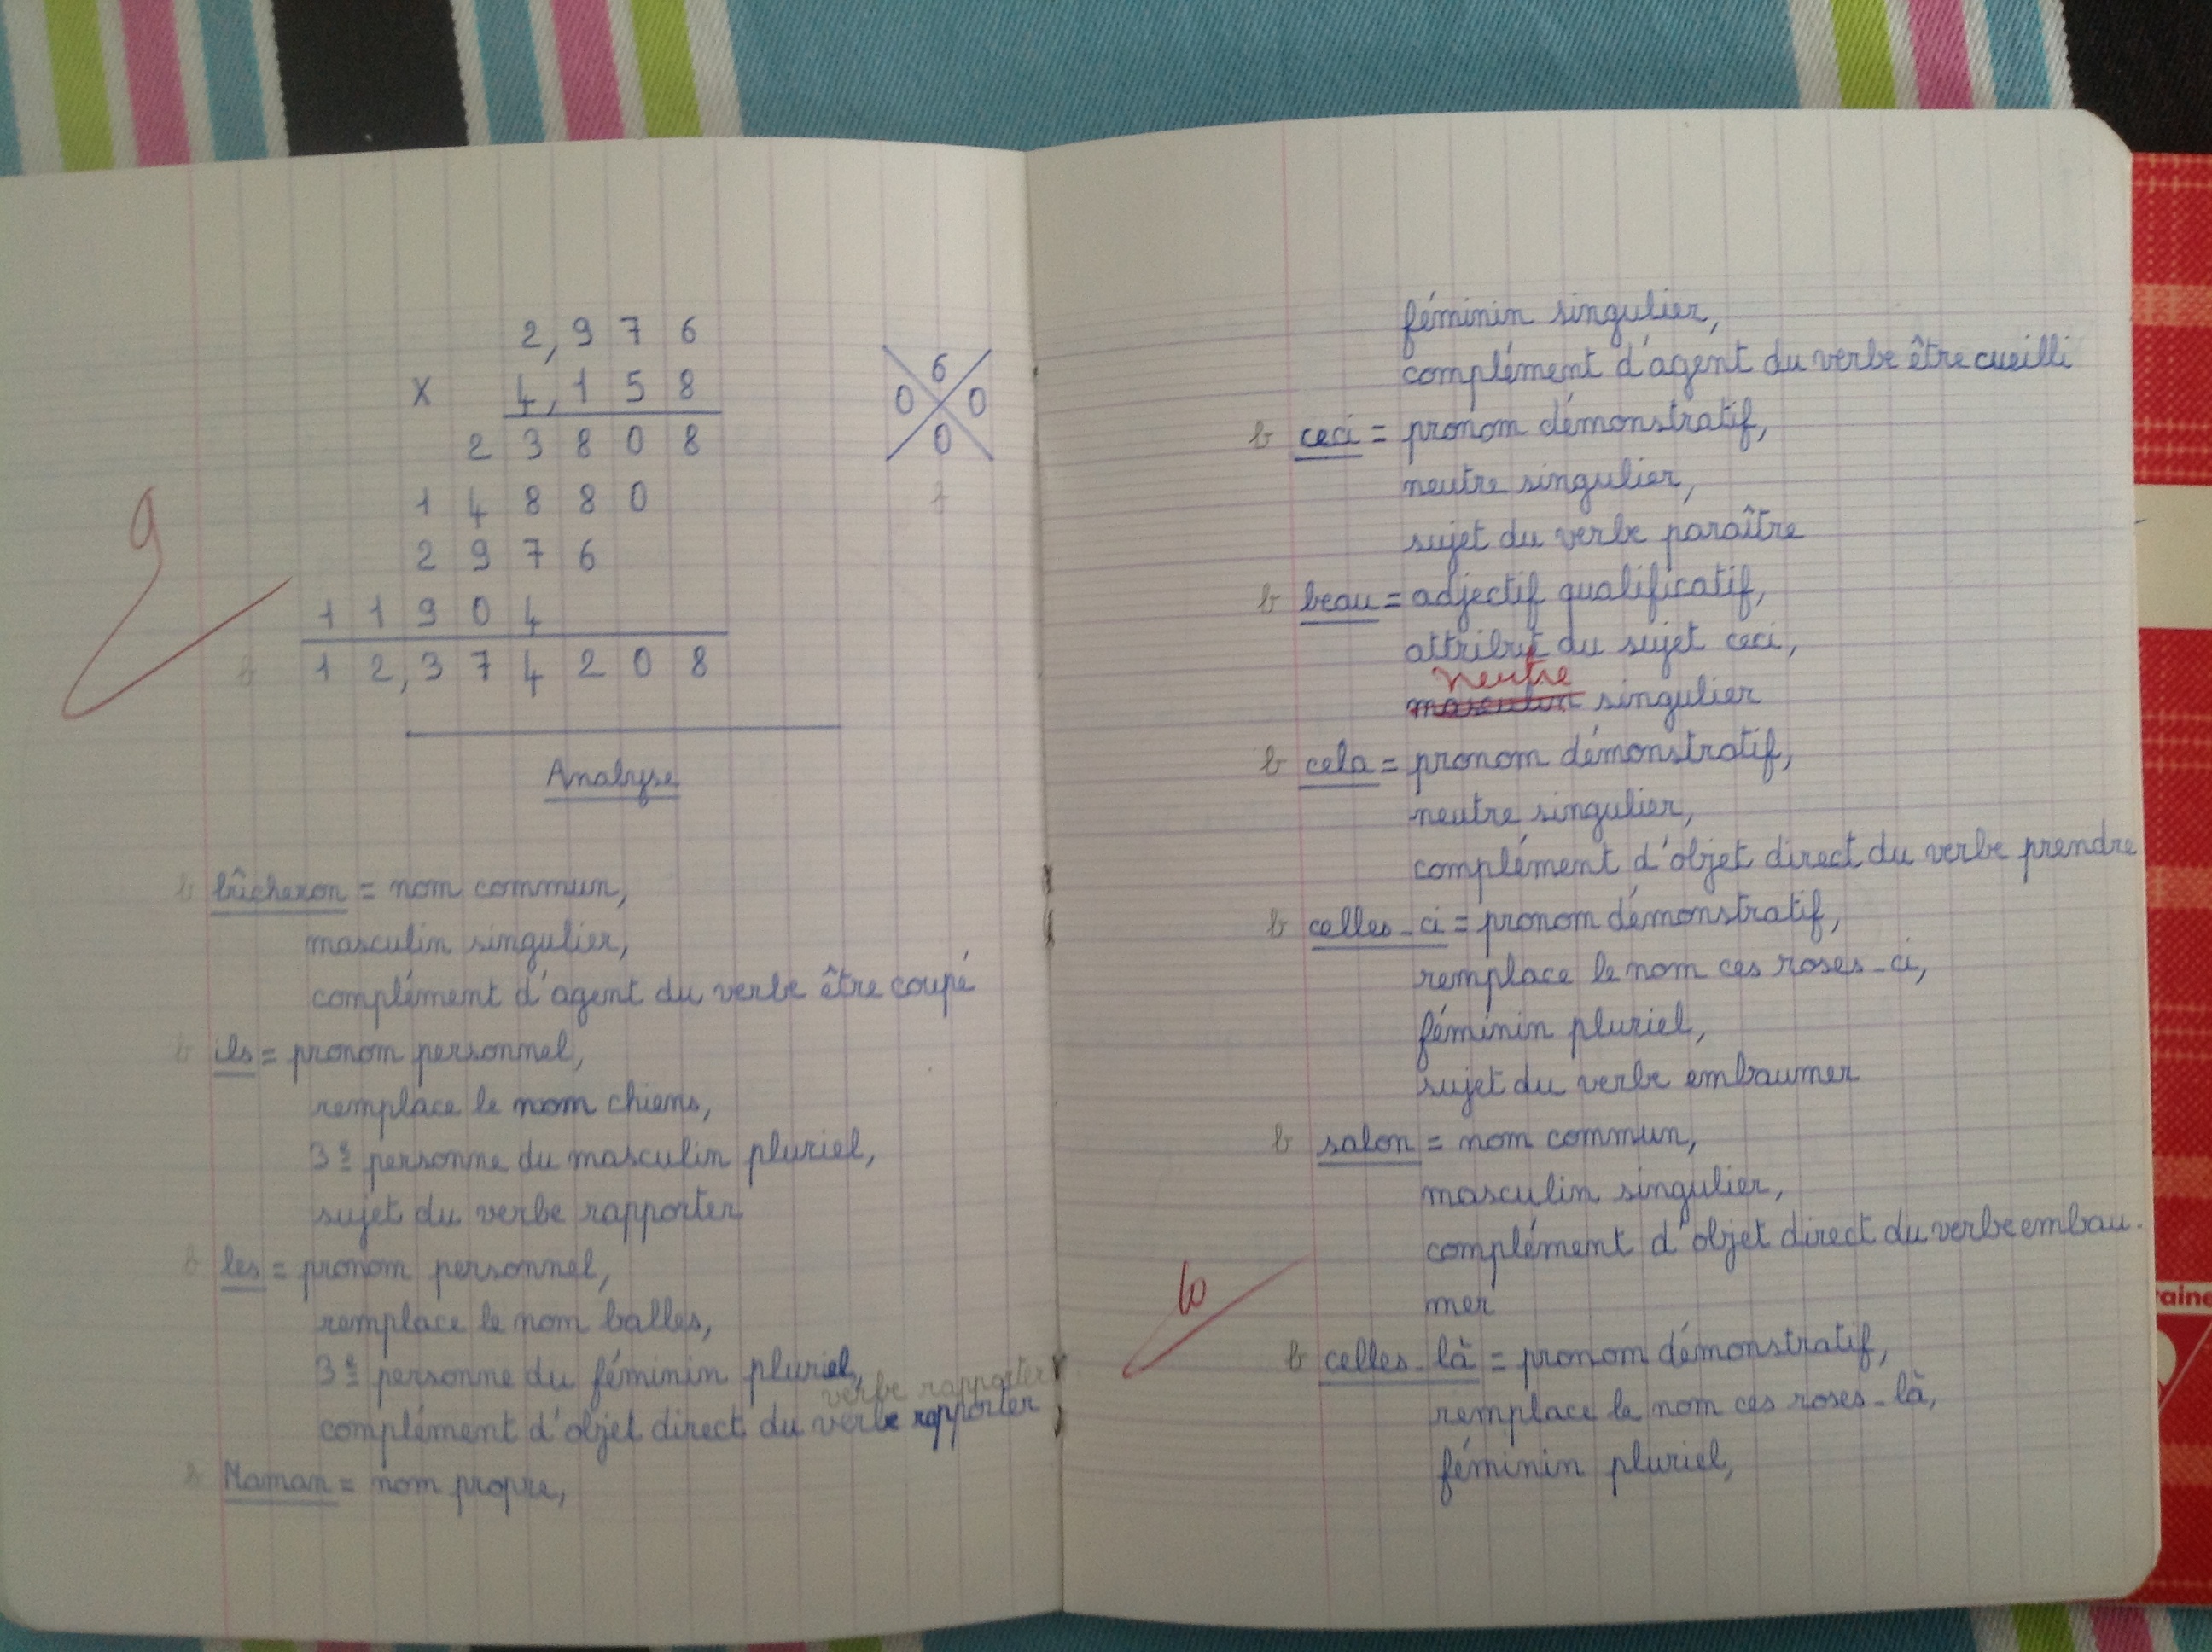 2,976
6
x 4,158
0 0
23808
0
9
14880
2976
11904
12,374208
Analyse
b bûcheron = nom commun,
masculin singulier,
complément d'agent du verbe être coupé
b ils = pronom personnel,
remplace le nom chiens,
3e personne du masculin pluriel,
sujet du verbe rapporter
b les = pronom personnel,
remplace le nom balles,
3e personne du féminin pluriel,
verbe rapporter
complément d'objet direct du verbe rapporter
b Maman = nom propre,
féminin singulier,
complément d'agent du verbe être cueilli
b ceci = pronom démonstratif,
neutre singulier,
sujet du verbe paraître
b beau = adjectif qualificatif,
attribut du sujet ceci,
neutre
masculin singulier
b cela = pronom démonstratif,
neutre singulier,
complément d'objet direct du verbe prendre
b celles-ci = pronom démonstratif,
remplace le nom ces roses-ci,
féminin pluriel,
sujet du verbe embaumer
b salon = nom commun,
masculin singulier,
complément d'objet direct du verbe embau-
mer
10
b celles-là = pronom démonstratif,
remplace le nom ces roses-là,
féminin pluriel,
raine